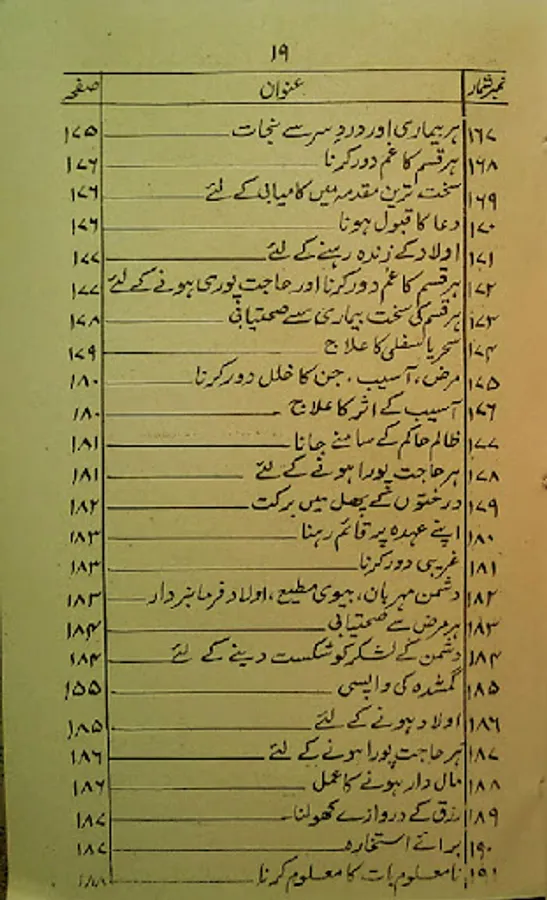 ۱۹
نمبر شمار عنوان صفحہ
۱۶۷ ہر بیماری اور درد سر سے نجات ۱۷۵
۱۶۸ ہر قسم کا غم دور کرنا ۱۷۶
۱۶۹ سخت ترین مقدمہ میں کامیابی کے لئے ۱۷۶
۱۷۰ دعا کا قبول ہونا ۱۷۶
۱۷۱ اولاد کے زندہ رہنے کے لئے ۱۷۷
۱۷۲ ہر قسم کا غم دور کرنا اور حاجت پوری ہونے کے لئے ۱۷۷
۱۷۳ ہر قسم کی سخت بیماری سے صحتیابی ۱۷۸
۱۷۴ سحر یا سفلی کا علاج ۱۷۹
۱۷۵ مرض، آسیب، جن کا خلل دور کرنا ۱۸۰
۱۷۶ آسیب کے اثر کا علاج ۱۸۰
۱۷۷ ظالم حاکم کے سامنے جانا ۱۸۱
۱۷۸ ہر حاجت پورا ہونے کے لئے ۱۸۱
۱۷۹ درختوں کے پھل میں برکت ۱۸۲
۱۸۰ اپنے عہدہ پر قائم رہنا ۱۸۳
۱۸۱ غریبی دور کرنا ۱۸۳
۱۸۲ دشمن مہربان، بیوی مطیع، اولاد فرمانبردار ۱۸۳
۱۸۳ ہر مرض سے صحتیابی ۱۸۴
۱۸۴ دشمن کے لشکر کو شکست دینے کے لئے ۱۸۴
۱۸۵ گمشدہ کی واپسی ۱۵۵
۱۸۶ اولاد ہونے کے لئے ۱۸۵
۱۸۷ ہر حاجت پورا ہونے کے لئے ۱۸۶
۱۸۸ مال دار ہونے کا عمل ۱۸۶
۱۸۹ رزق کے دروازے کھولنا ۱۸۷
۱۹۰ برائے استخارہ ۱۸۷
۱۹۱ نامعلوم بات کا معلوم کرنا ۱۸۸